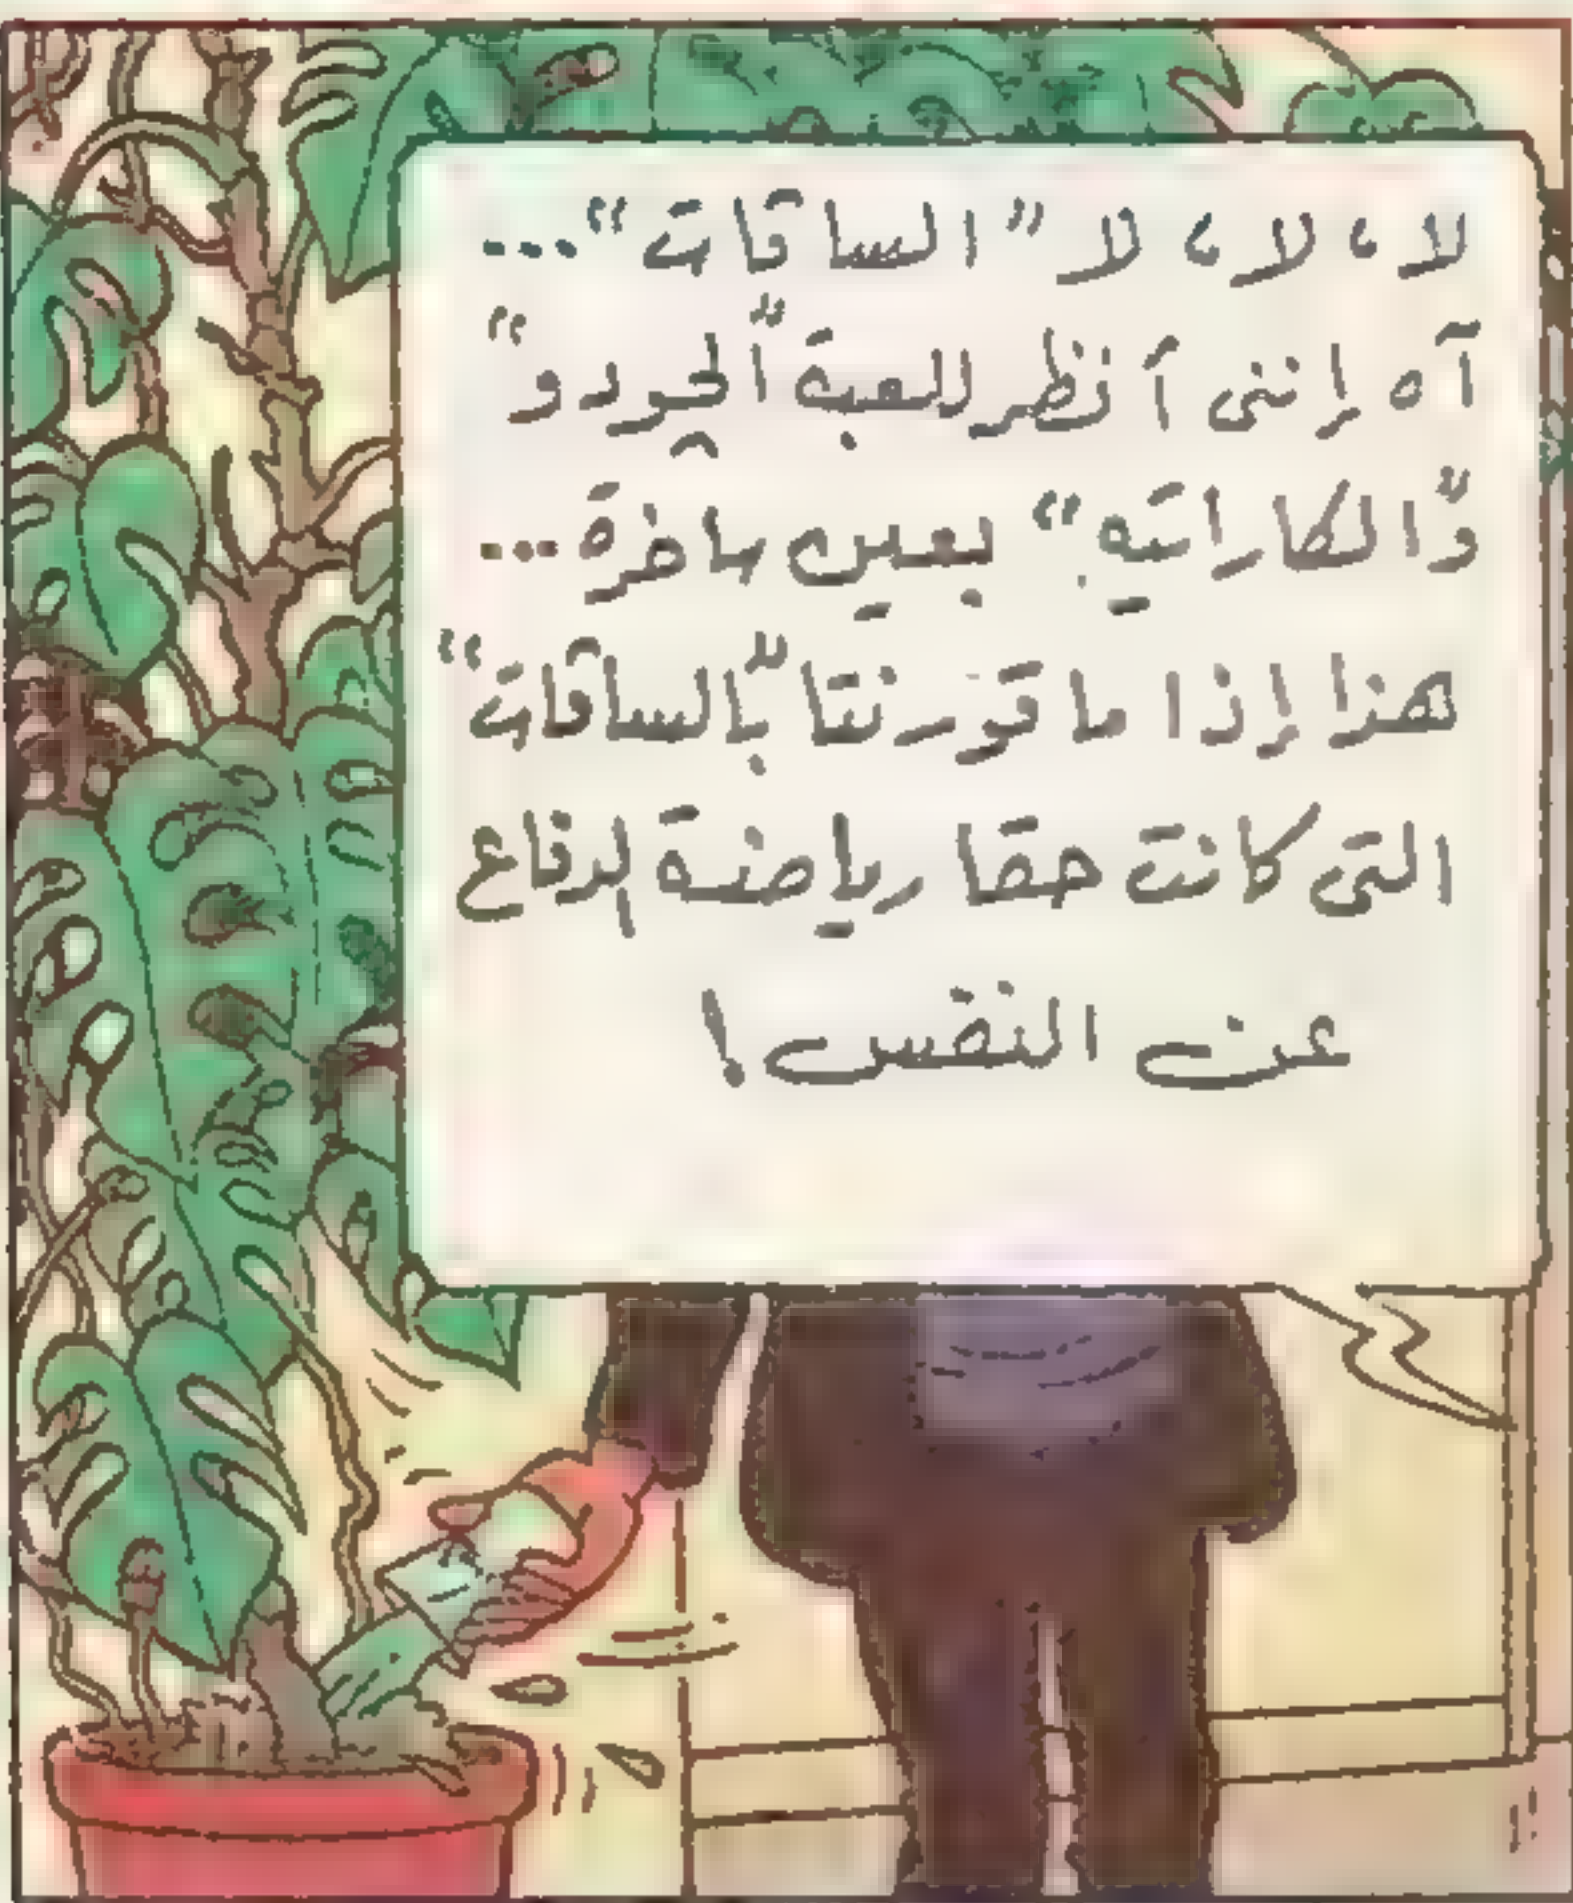 لا، لا، لا "الساقات"...
آه إننى أنظر للعبة "الجودو"
و"الكاراتيه" بعين ساخرة...
هذا إذا ما قورنتا ب"الساقات"
التى كانت حقا رياضة لدفاع
عن النفس!